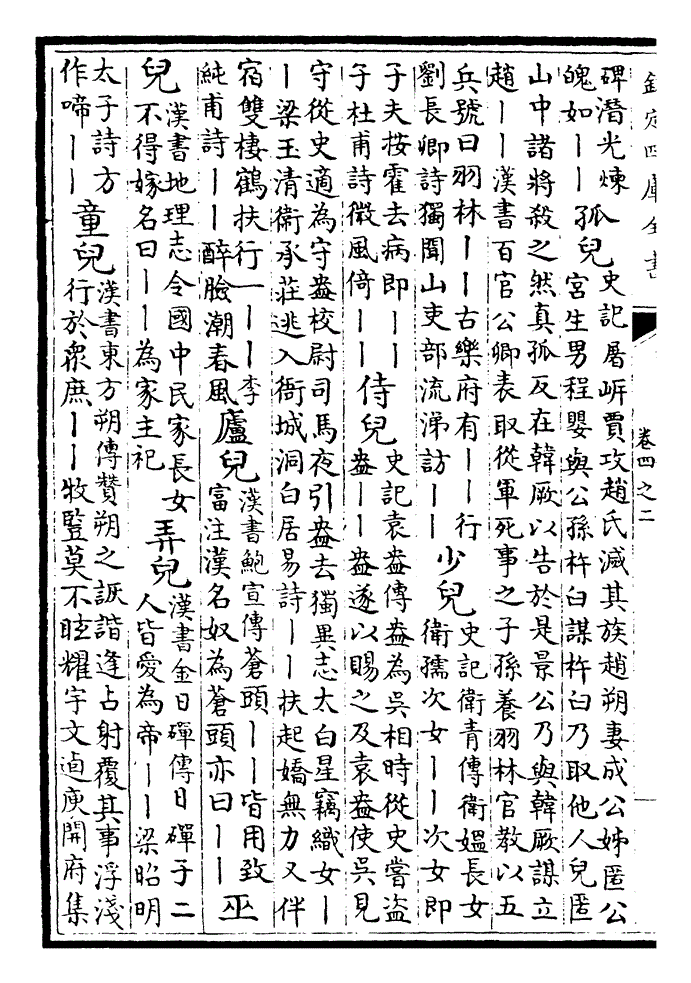 欽定四庫全書
卷四之二
碑潜光煉
魄如丨丨
孤兒
史記屠岍賈攻趙氏滅其族趙朔妻成公姊匿公
宮生男程嬰與公孫杵臼謀杵臼乃取他人兒匿
山中諸將殺之然真孤反在韓厥以告於是景公乃與韓厥謀立
趙丨丨漢書百官公卿表取從軍死事之子孫養羽林官教以五
兵號曰羽林丨丨古樂府有丨丨行
劉長卿詩獨聞山吏部流涕訪丨丨
少兒
史記衛青傳衛媼長女
衛孺次女丨丨次女即
子夫按霍去病即丨丨
子杜甫詩微風倚丨丨
侍兒
史記袁盎傳盎為吳相時從史嘗盗
盎丨丨盎遂以賜之及袁盎使吳見
守從史適為守盎校尉司馬夜引盎去獨異志太白星竊織女丨
丨梁玉清衛承莊逃入衙城洞白居易詩丨丨扶起嬌無力又伴
宿雙棲鶴扶行一丨丨李
純甫詩丨丨醉臉潮春風
廬兒
漢書鮑宣傳蒼頭丨丨皆用致
富注漢名奴為蒼頭亦曰丨丨
巫
兒
漢書地理志令國中民家長女
不得嫁名曰丨丨為家主祀
弄兒
漢書金日磾傳日磾子二
人皆愛為帝丨丨梁昭明
太子詩方
作啼丨丨
童兒
漢書東方朔傳贊朔之詼諧逢占射覆其事浮淺
行於衆庶丨丨牧豎莫不眩耀宇文逌庾開府集